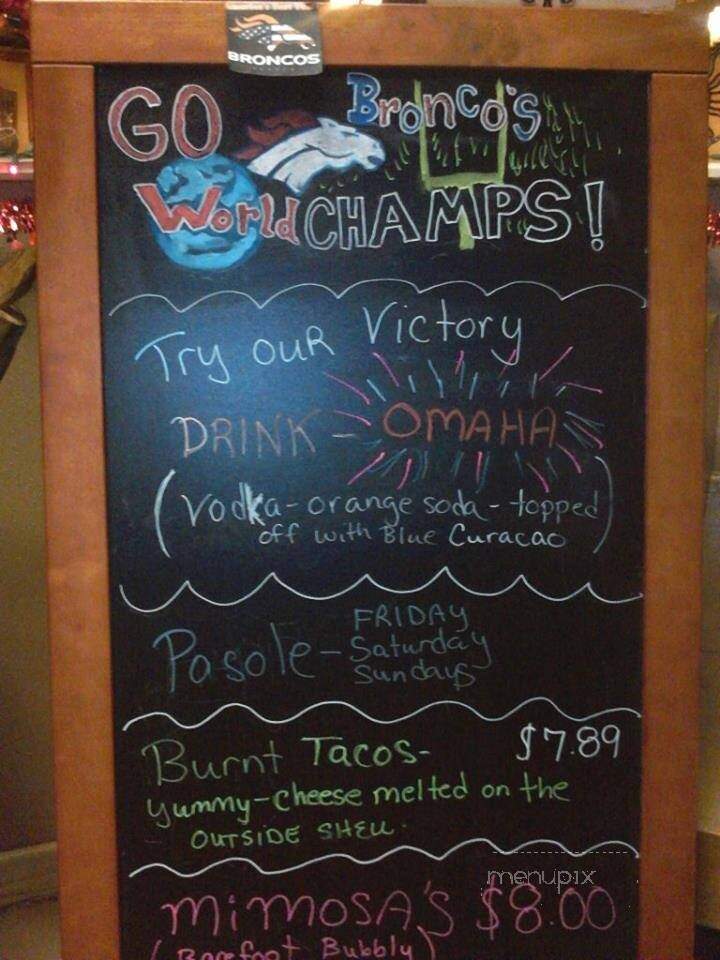 BRONCOS
GO Bronco's
World CHAMPS!
Try our Victory
DRINK - OMAHA
(Vodka - orange soda - topped
off with Blue Curacao)
Posole - FRIDAY
Saturday
Sundays
Burnt Tacos - $7.89
yummy - cheese melted on the
OUTSIDE SHELL.
menupix
MIMOSA'S $8.00
(Barefoot Bubbly)